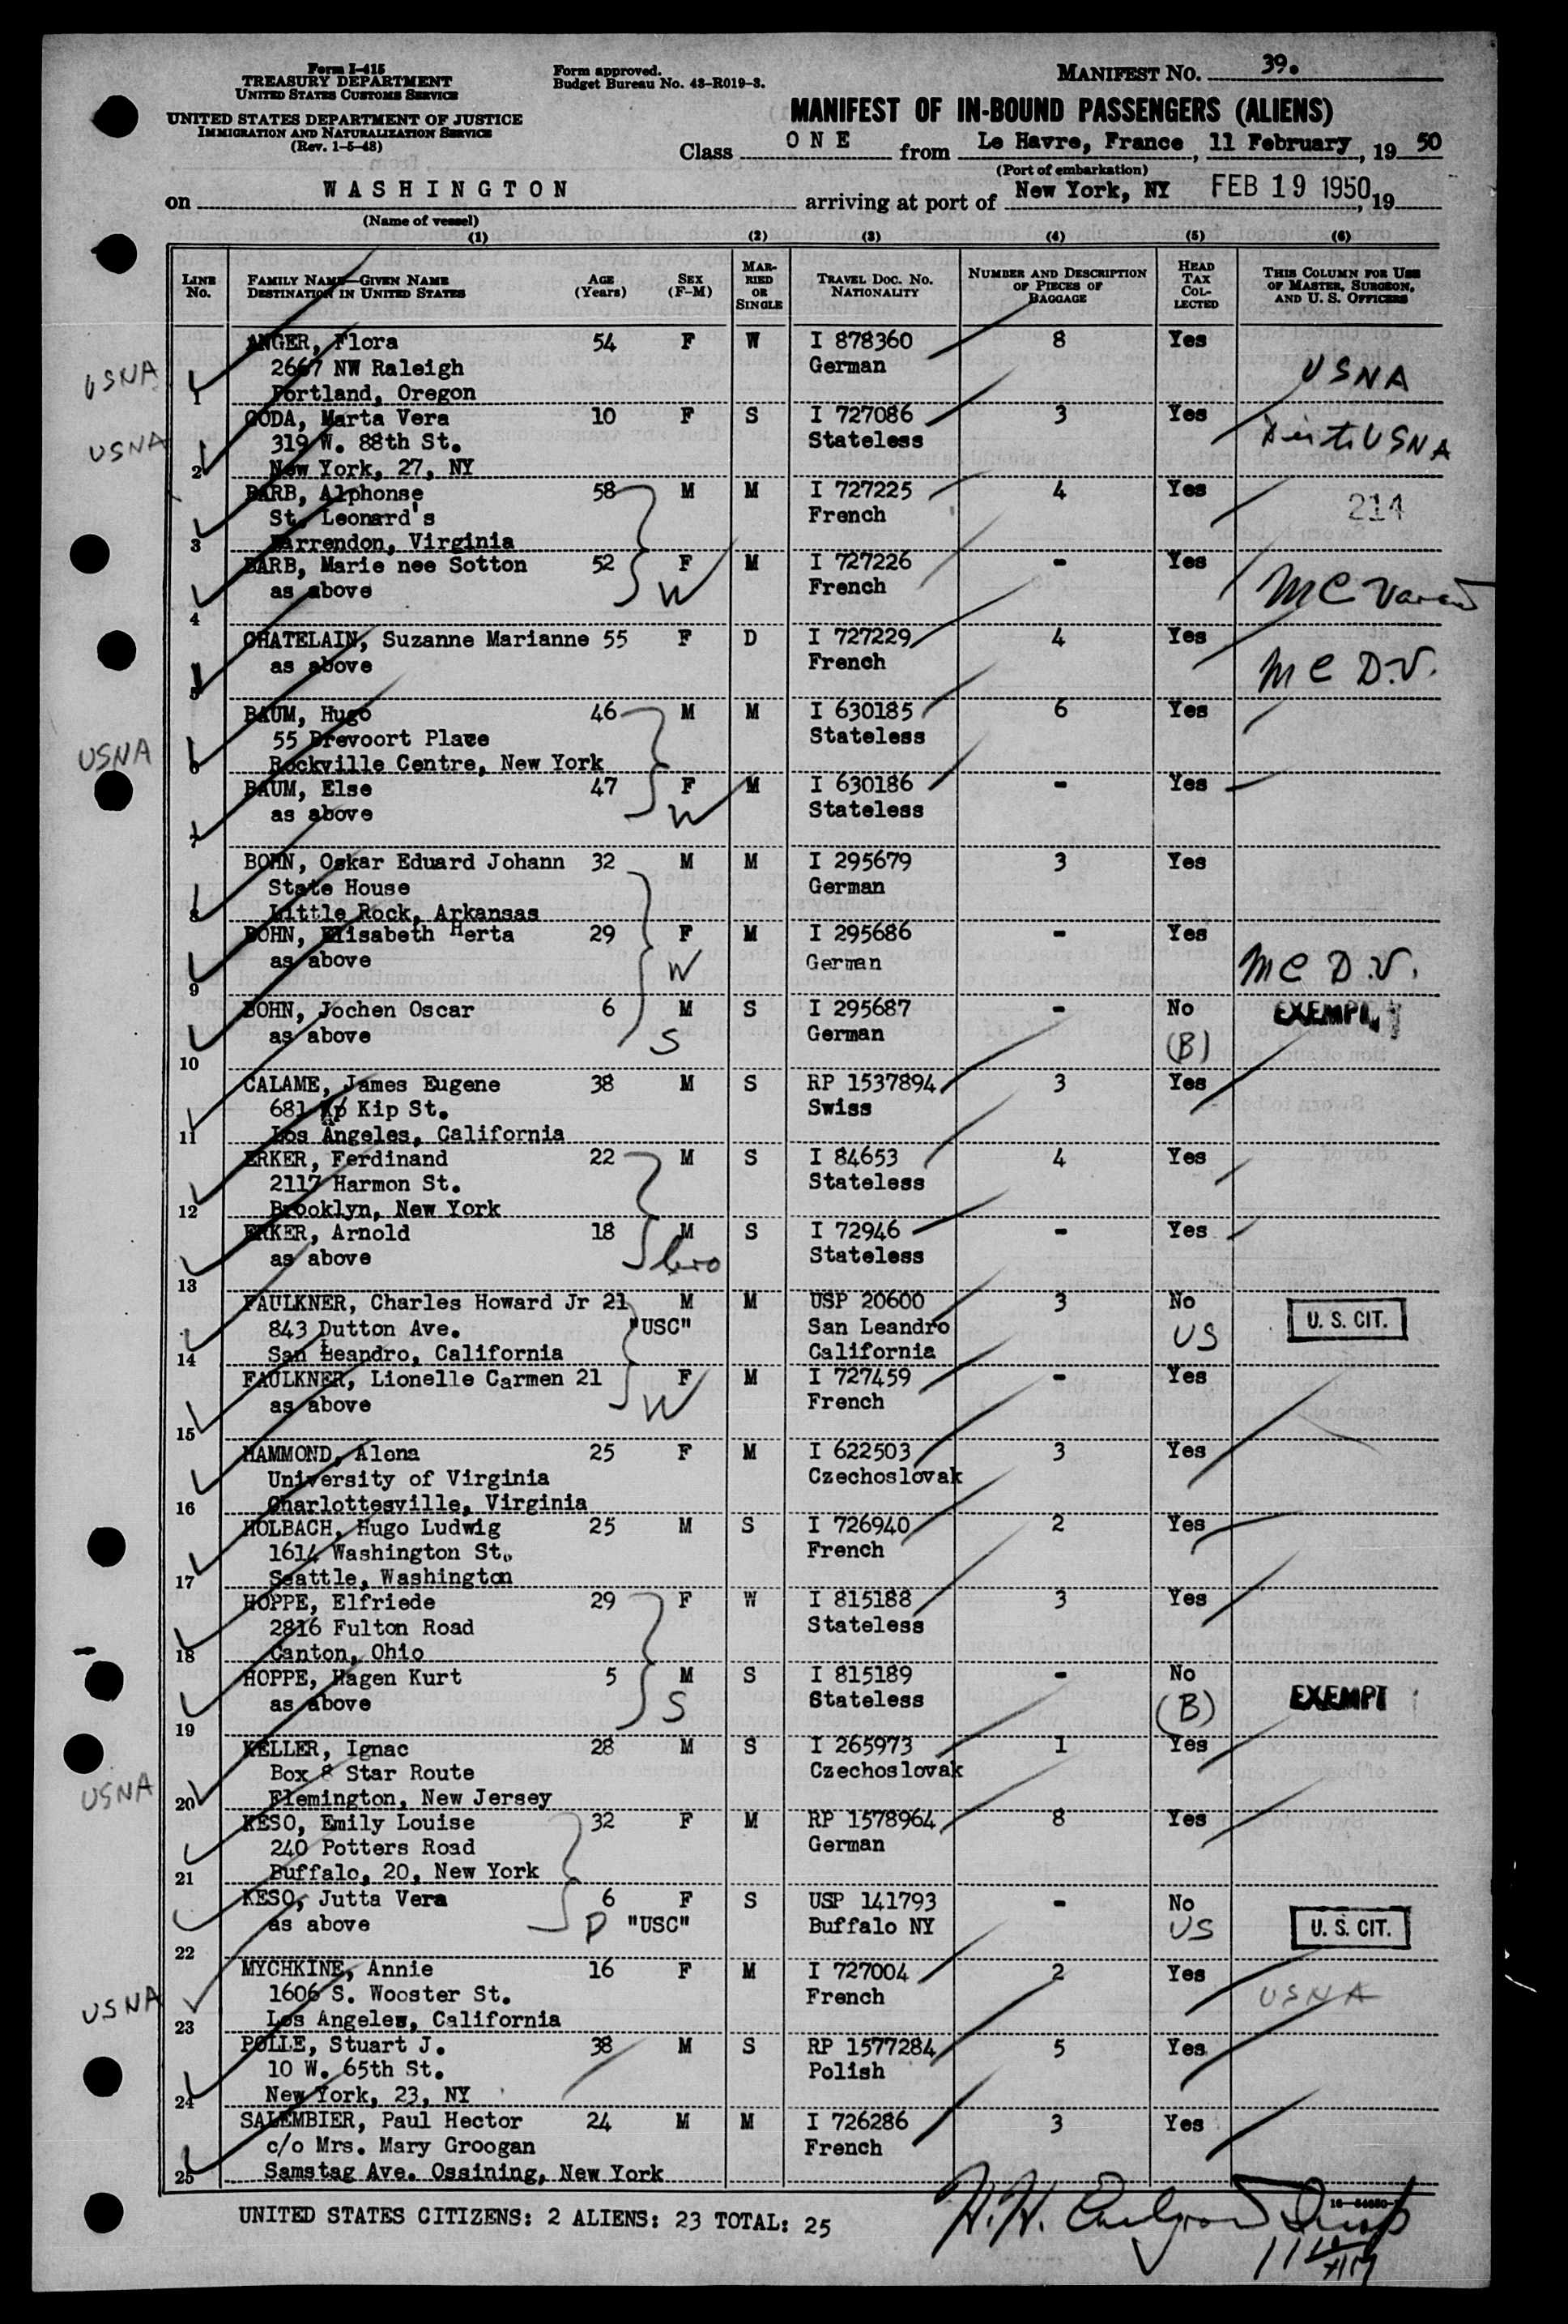 Form I-415
TREASURY DEPARTMENT
UNITED STATES CUSTOMS SERVICE
UNITED STATES DEPARTMENT OF JUSTICE
IMMIGRATION AND NATURALIZATION SERVICE
(Rev. 1-5-48)
Form approved.
Budget Bureau No. 43-R019-3.
MANIFEST NO. 39.
MANIFEST OF IN-BOUND PASSENGERS (ALIENS)
Class ONE from Le Havre, France, 11 February, 19 50
(Port of embarkation)
on WASHINGTON arriving at port of New York, NY FEB 19 1950, 19
(Name of vessel)
(1) (2) (3) (4) (5) (6)
LINE No. FAMILY NAME—GIVEN NAME DESTINATION IN UNITED STATES AGE (Years) SEX (F-M) MARRIED OR SINGLE TRAVEL DOC. NO. NATIONALITY NUMBER AND DESCRIPTION OF PIECES OF BAGGAGE HEAD TAX COLLECTED THIS COLUMN FOR USE OF MASTER, SURGEON, AND U. S. OFFICERS
ANGER, Flora 54 F W I 878360 8 Yes
USNA 2667 NW Raleigh German USNA
1 Portland, Oregon
GODA, Marta Vera 10 F S I 727086 3 Yes
USNA 319 W. 88th St. Stateless USNA
2 New York, 27, NY
BARB, Alphonse 58 M M I 727225 4 Yes
St. Leonard's French 214
3 Warrendon, Virginia
BARB, Marie nee Sotton 52 F M I 727226 - Yes
as above W French MC
4
CHATELAIN, Suzanne Marianne 55 F D I 727229 4 Yes
as above French MC D.V.
5
BAUM, Hugo 46 M M I 630185 6 Yes
55 Brevoort Place Stateless
USNA 6 Rockville Centre, New York
BAUM, Else 47 F M I 630186 - Yes
as above W Stateless
7
BOHN, Oskar Eduard Johann 32 M M I 295679 3 Yes
State House German
8 Little Rock, Arkansas
BOHN, Elisabeth Herta 29 F M I 295686 - Yes
as above W German MC D.V.
9
BOHN, Jochen Oscar 6 M S I 295687 - No EXEMPT
as above S German (B)
10
CALAME, James Eugene 38 M S RP 1537894 3 Yes
681 Kp Kip St. Swiss
11 Los Angeles, California
ERKER, Ferdinand 22 M S I 84653 4 Yes
2117 Harmon St. Stateless
12 Brooklyn, New York
ERKER, Arnold 18 M S I 72946 - Yes
as above bro Stateless
13
FAULKNER, Charles Howard Jr 21 M M USP 20600 3 No U. S. CIT.
843 Dutton Ave. "USC" San Leandro US
14 San Leandro, California California
FAULKNER, Lionelle Carmen 21 F M I 727459 - Yes
as above W French
15
HAMMOND, Alena 25 F M I 622503 3 Yes
University of Virginia Czechoslovak
16 Charlottesville, Virginia
HOLBACH, Hugo Ludwig 25 M S I 726940 2 Yes
1614 Washington St. French
17 Seattle, Washington
HOPPE, Elfriede 29 F W I 815188 3 Yes
2816 Fulton Road Stateless
18 Canton, Ohio
HOPPE, Hagen Kurt 5 M S I 815189 - No EXEMPT
as above S Stateless (B)
19
KELLER, Ignac 28 M S I 265973 1 Yes
Box 8 Star Route Czechoslovak
USNA 20 Flemington, New Jersey
KESO, Emily Louise 32 F M RP 1578964 8 Yes
240 Potters Road German
21 Buffalo, 20, New York
KESO, Jutta Vera 6 F S USP 141793 - No U. S. CIT.
as above D "USC" Buffalo NY US
22
MYCHKINE, Annie 16 F M I 727004 2 Yes
USNA 1606 S. Wooster St. French USNA
23 Los Angelew, California
POLLE, Stuart J. 38 M S RP 1577284 5 Yes
10 W. 65th St. Polish
24 New York, 23, NY
SALEMBIER, Paul Hector 24 M M I 726286 3 Yes
c/o Mrs. Mary Groogan French
25 Samstag Ave. Ossining, New York
UNITED STATES CITIZENS: 2 ALIENS: 23 TOTAL: 25
H.H.